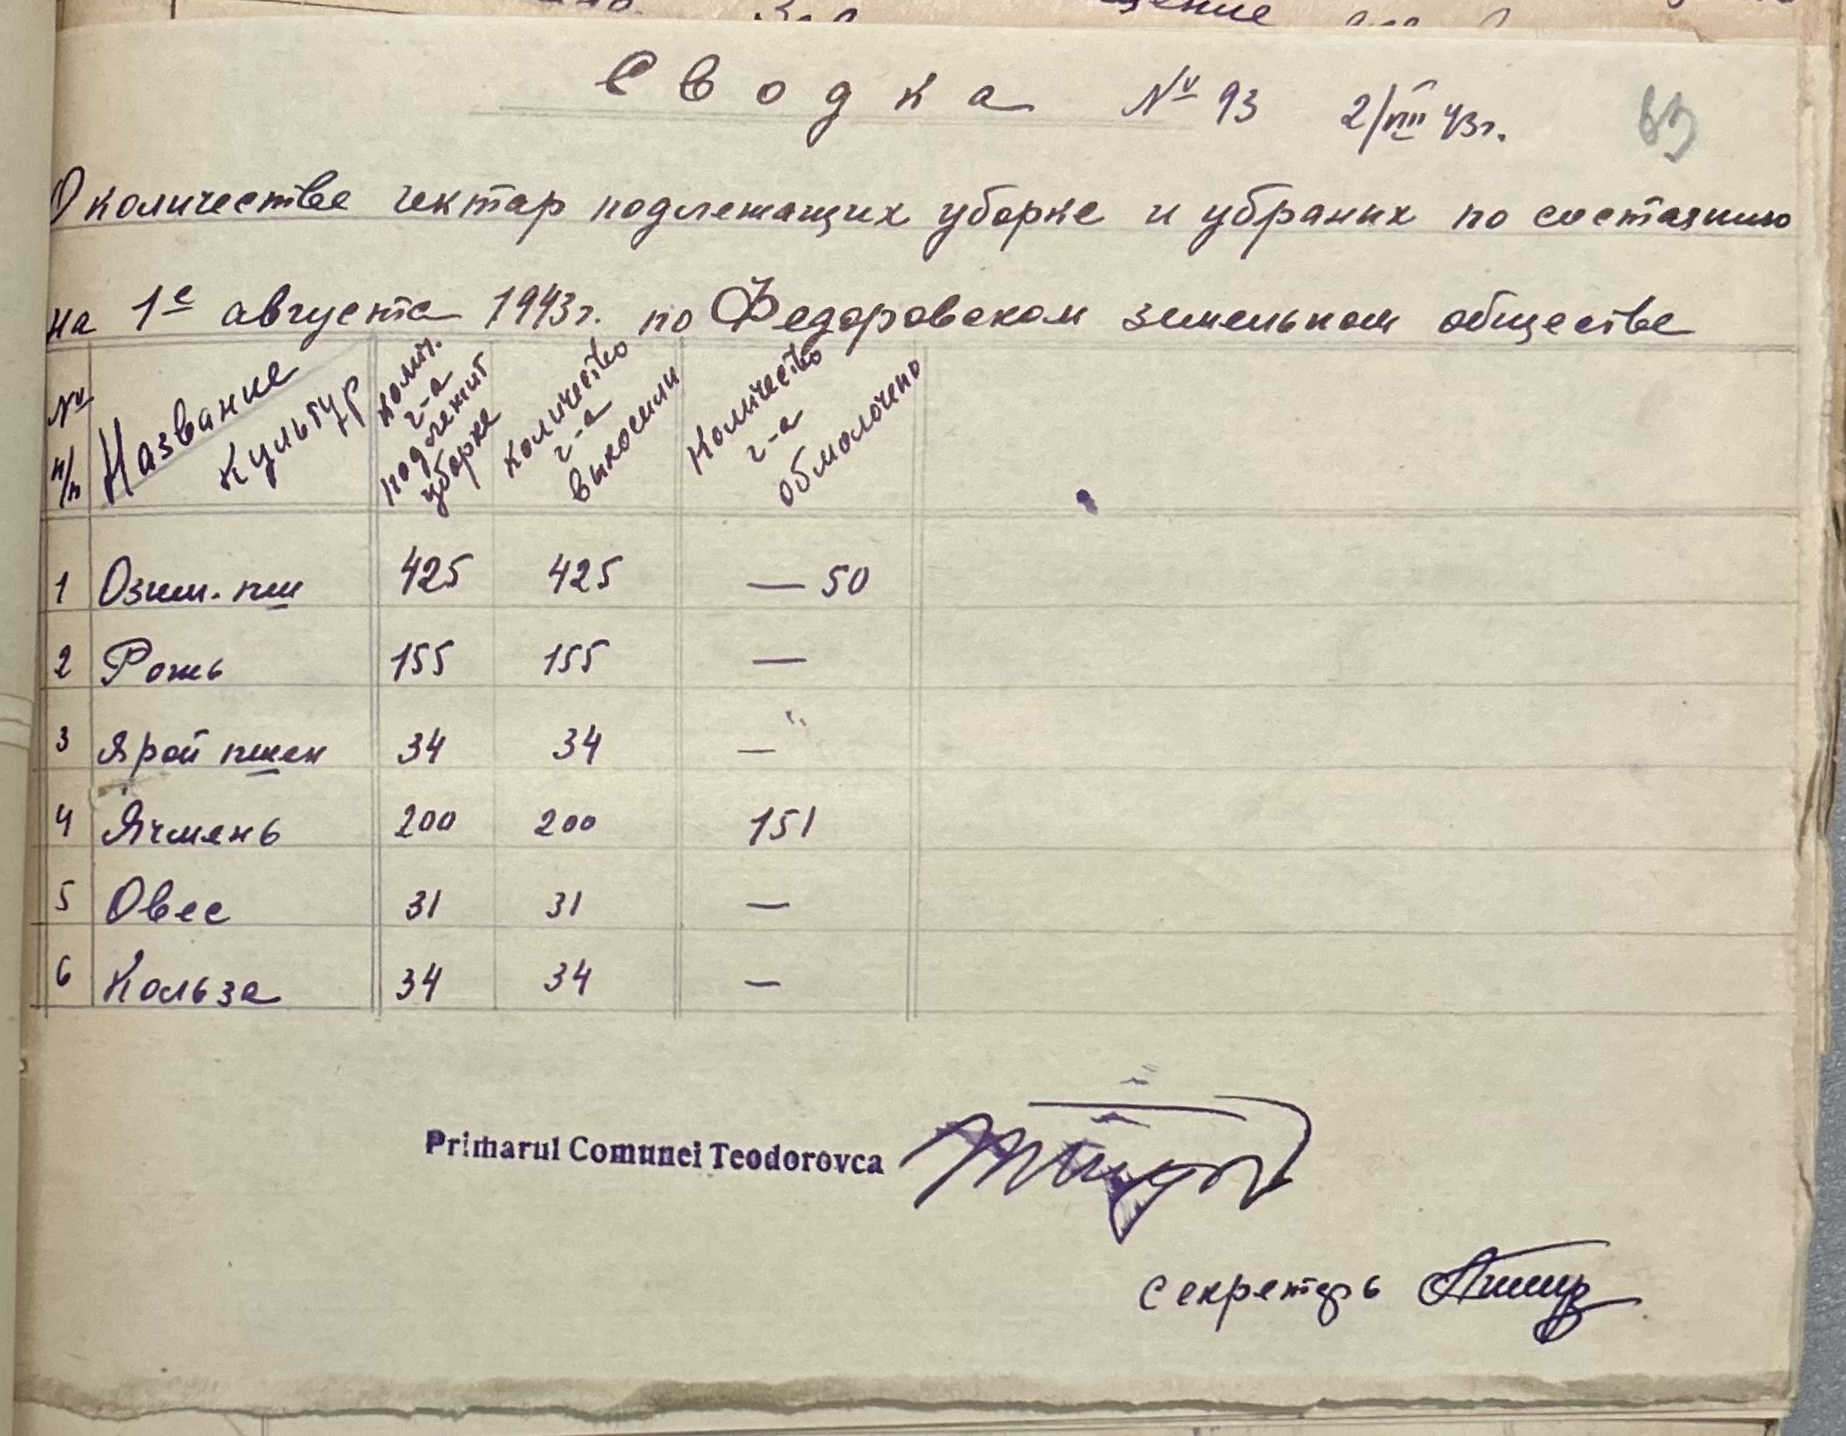 Сводка № 93 2/VIII 43г.
О количестве гектар подлежащих уборке и убраних по состаянию
на 1е августа 1943г. по Федоровском земельном обществе
№ п/п Название культур Колич. г-а подлежит уборке Количество г-а выкосили Количество г-а обмолочено
1 Озим. пш 425 425 — 50
2 Рожь 155 155 —
3 Ярой пшен 34 34 —
4 Ячмянь 200 200 151
5 Овес 31 31 —
6 Кольза 34 34 —
Primarul Comunei Teodorovca
секретарь